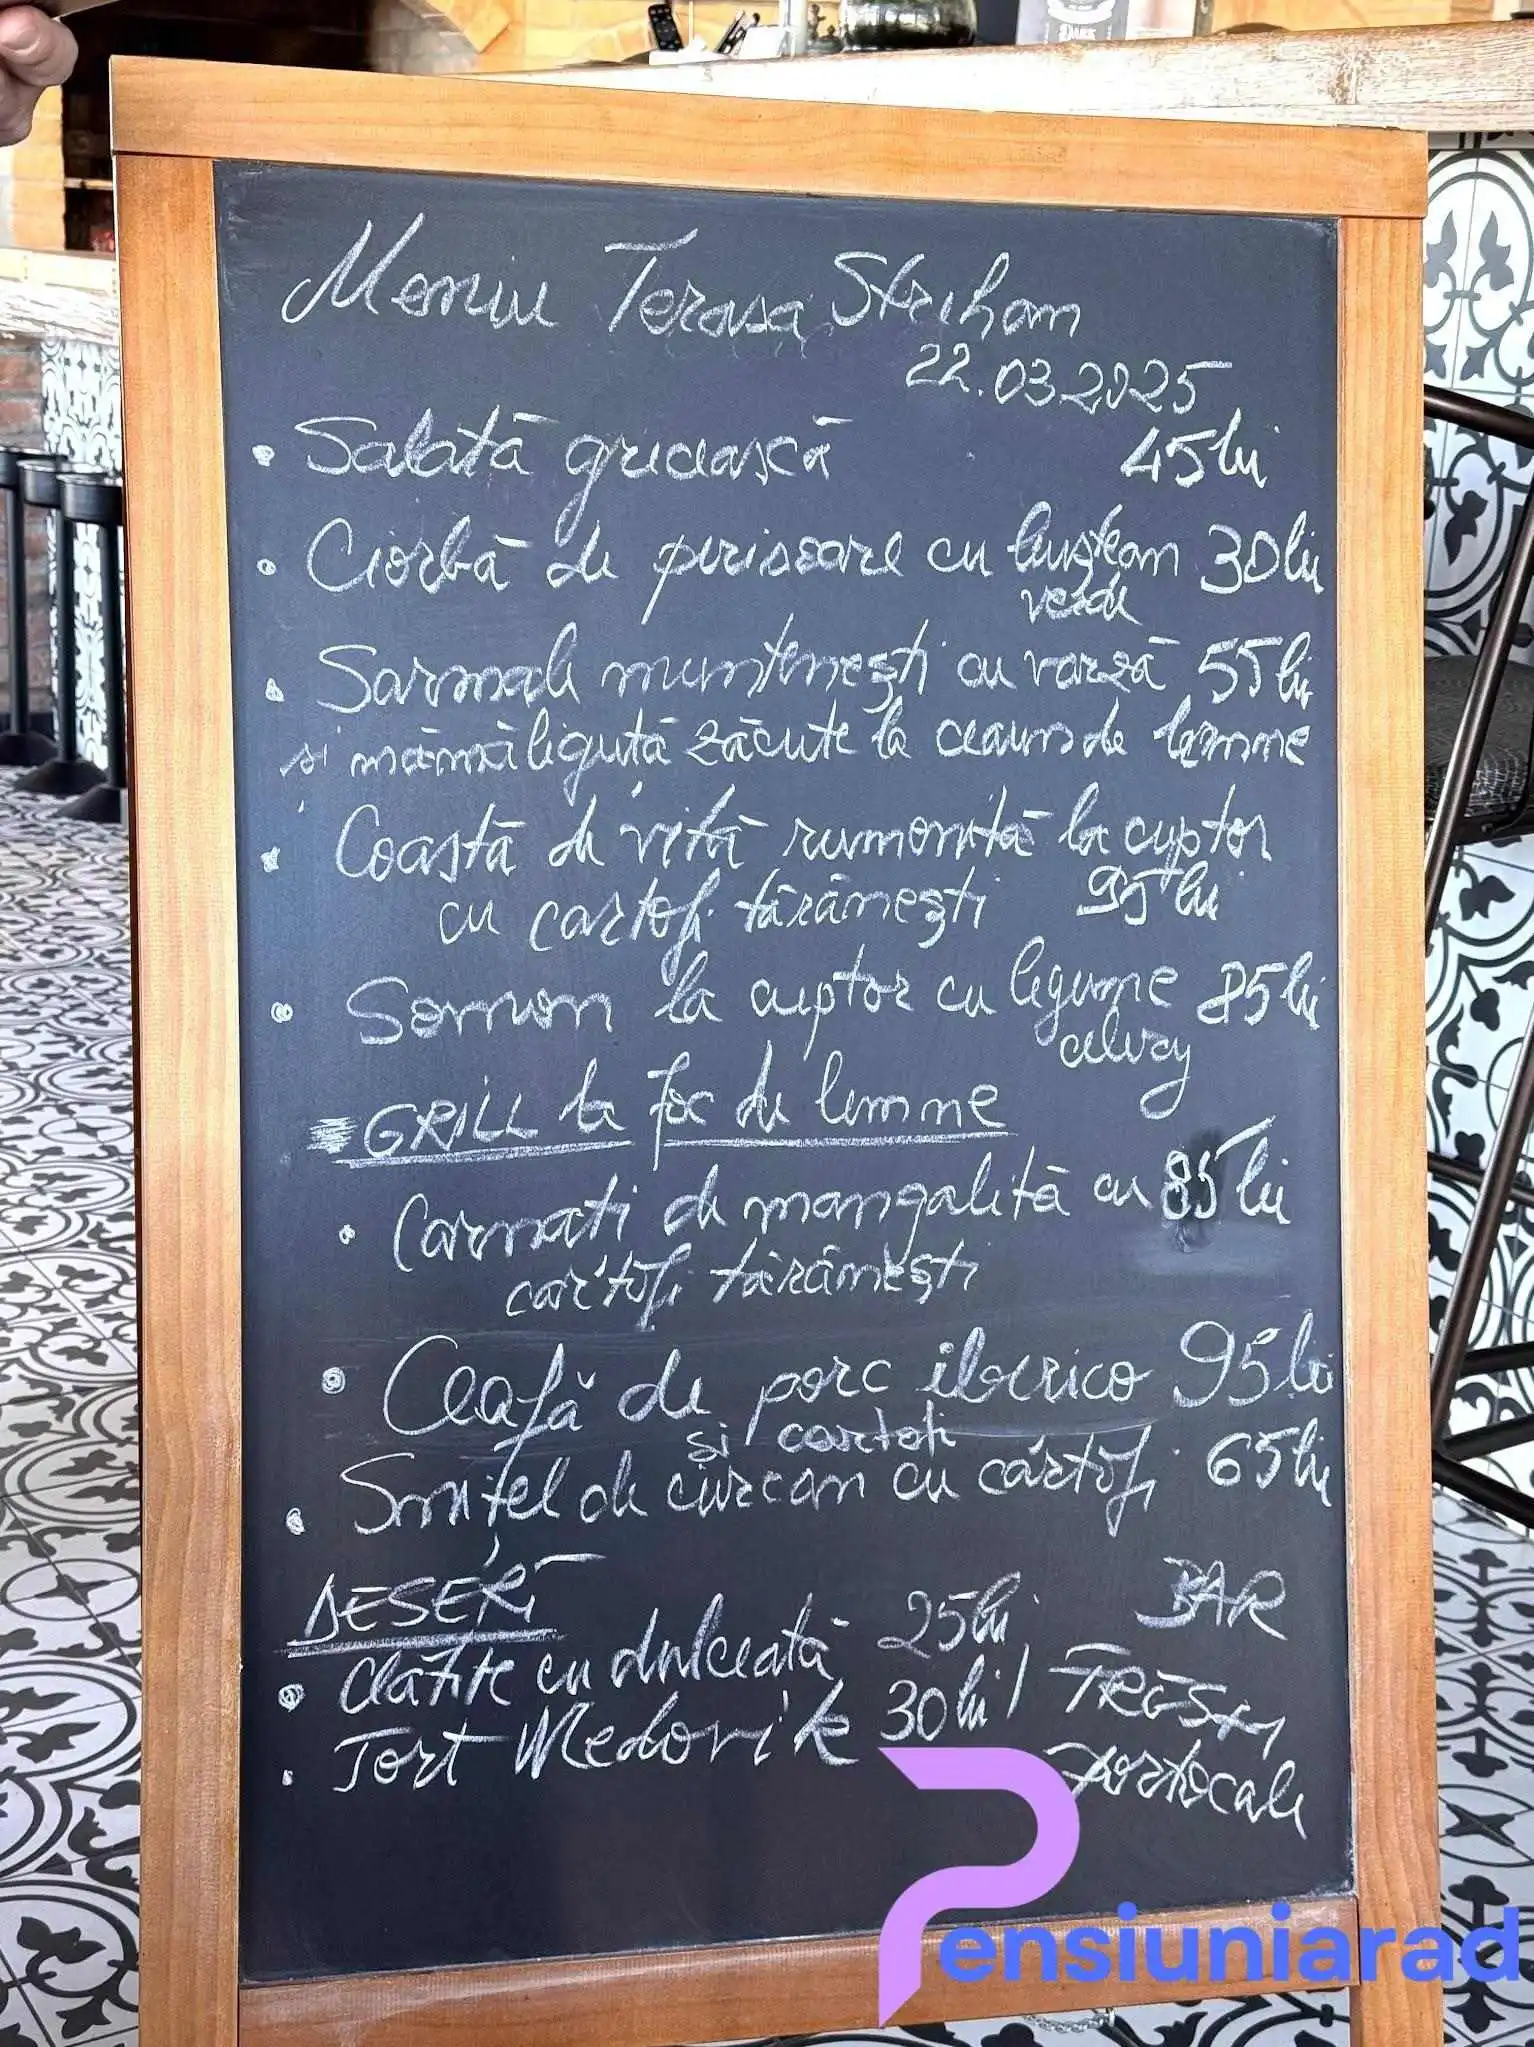 Meniu Terasa Striham
22.03.2025
• Salată grecească 45 lei
• Ciorbă de perisoare cu leuștean 30 lei
verde
• Sarmale muntenești cu varză 55 lei
si mămăliguță zăcute la ceaun de lemne
• Coastă de vită rumenită la cuptor
cu cartofi tărănești 95 lei
• Somon la cuptor cu legume 85 lei
GRILL la foc de lemne
• Carnati de mangalită cu 85 lei
cartofi tărănești
• Ceafă de porc iberico 95 lei
și cartofi
• Snițel de curcan cu cartofi 65 lei
DESERT
BAR
• Clătite cu dulceată 25 lei
FRESH
• Tort Medovik 30 lei
portocale
Pensiuniarad